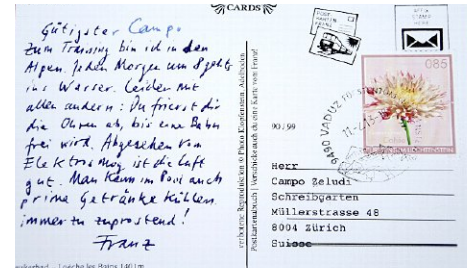 CARDS
Gütigster Campo
Zum Training bin ich in den
Alpen. Jeden Morgen um 8 gehts
ins Wasser. Leider mit
allen andern: Du frierst dir
die Ohren ab, bis eine Bahn
frei wird. Abgesehen vom
Elektrosmog ist die Luft
gut. Man kann im Pool auch
prima Getränke kühlen.
immer zu zuprostend!
Franz
Loèche les Bains 1401 m
verbotene Reproduktion © Photo Klopfenstein, Adelboden
Postkartenabuch | Verschicke auch du eine Karte vom Franz!
90 / 99
085
9490 VADUZ
Herr
Campo Zeludi
Schreibgarten
Müllerstrasse 48
8004 Zürich
Suisse